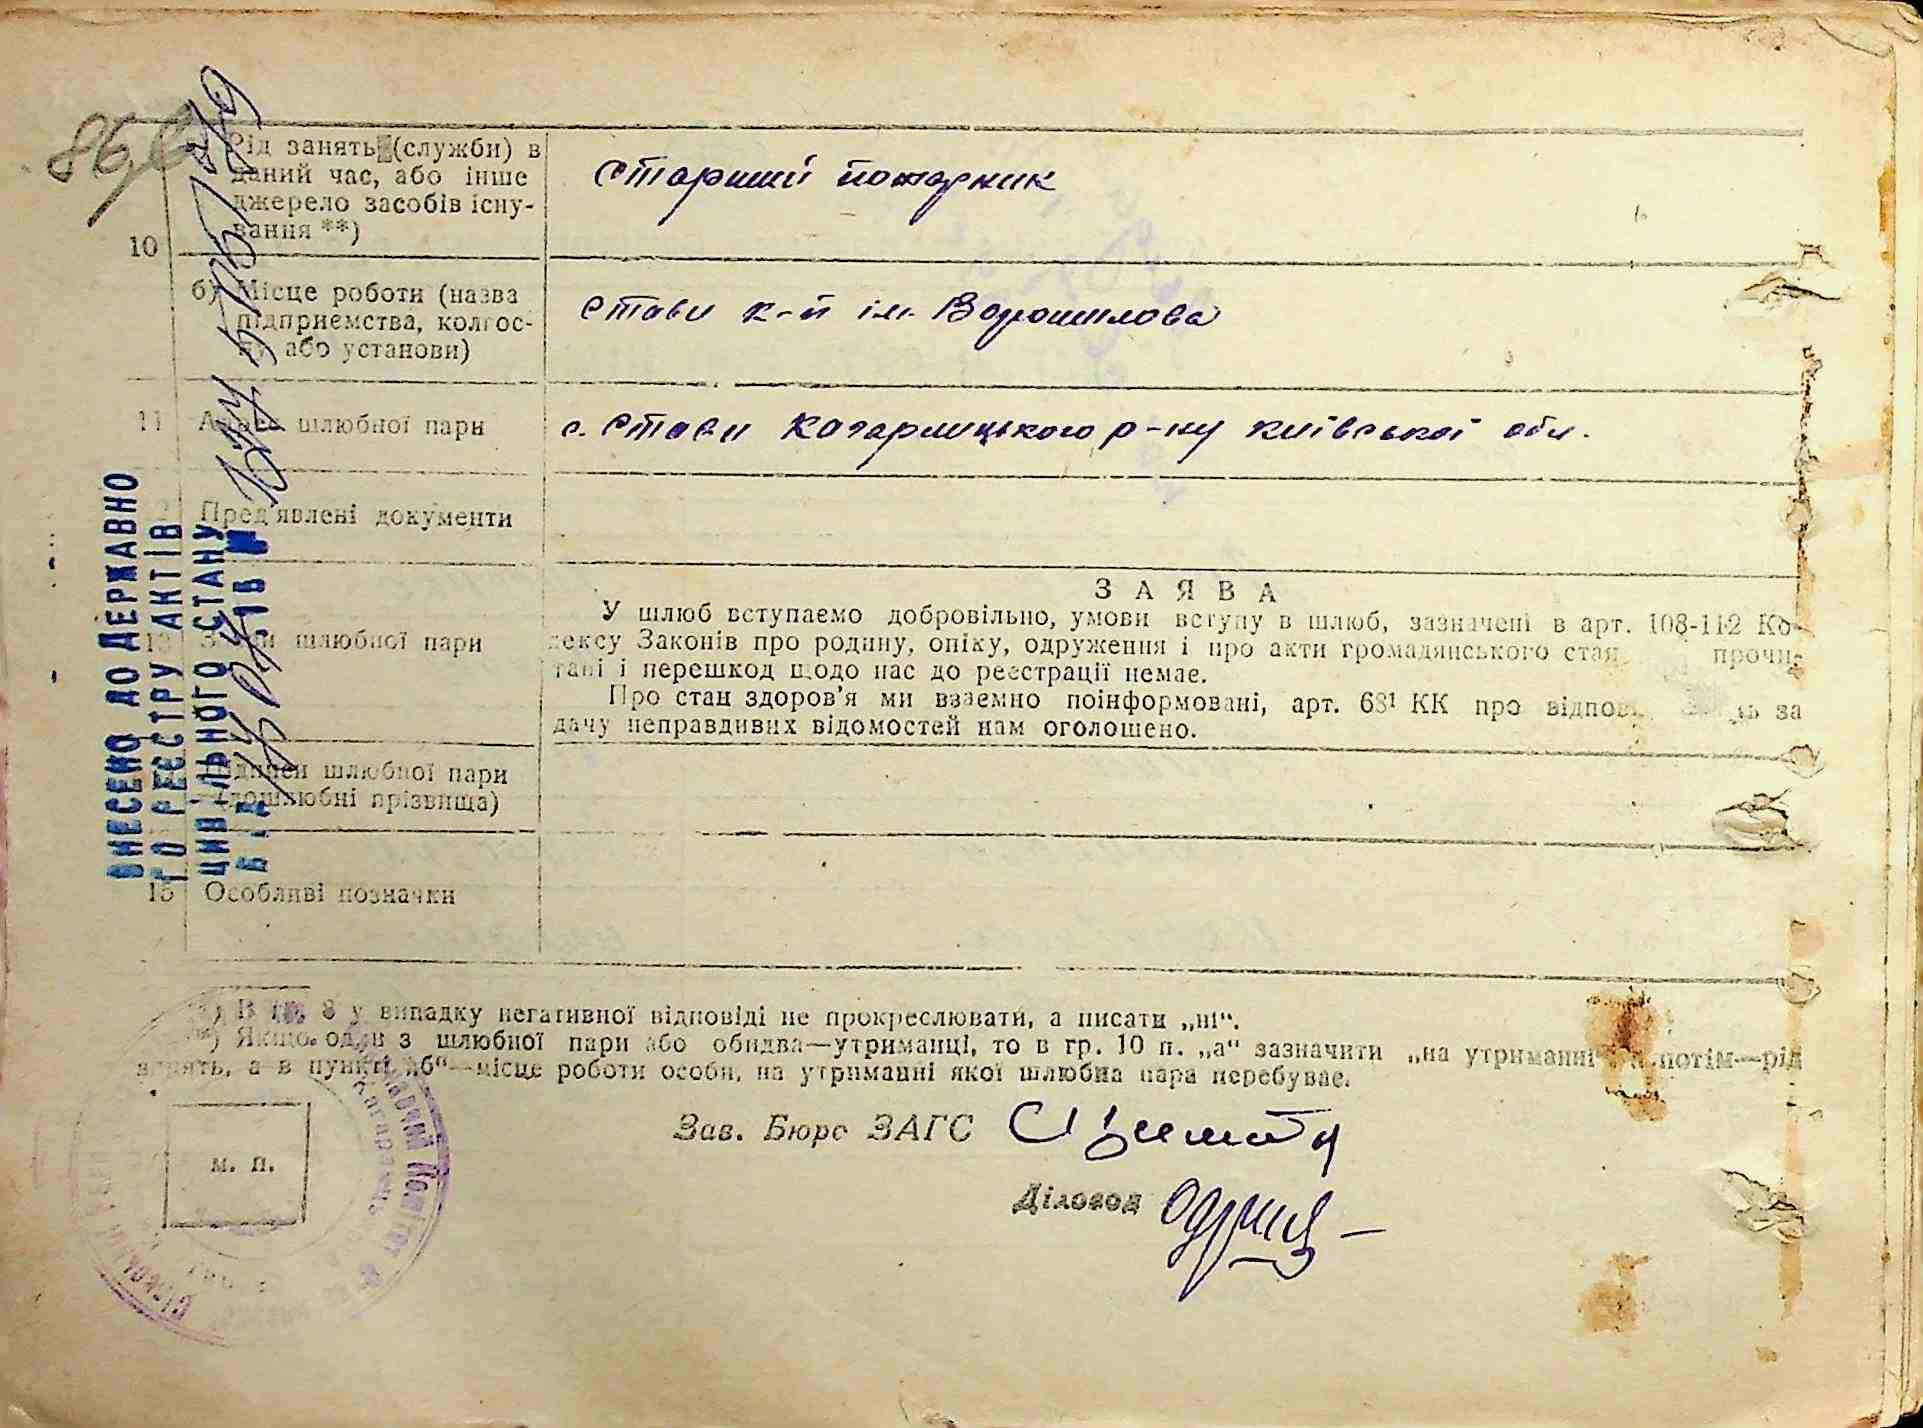 86
Рід занять (служби) в
даний час, або інше
джерело засобів існу-
вання **)
10
Старший пожарник
б) Місце роботи (назва
підприємства, колгос-
пу або установи)
Стави к-п ім. Ворошилова
11 Адрес шлюбної пари
с. Стави Кагарлицького р-ну Київської обл.
Пред'явлені документи
ЗАЯВА
У шлюб вступаємо добровільно, умови вступу в шлюб, зазначені в арт. 108-112 Ко-
дексу Законів про родину, опіку, одруження і про акти громадянського стан прочи-
тані і перешкод щодо нас до реєстрації немає.
Про стан здоров'я ми взаємно поінформовані, арт. 68¹ КК про відпов за
дачу неправдивих відомостей нам оголошено.
13 шлюбної пари
Підписи шлюбної пари
(дошлюбні прізвища)
15 Особливі позначки
ВНЕСЕНО ДО ДЕРЖАВНО
ГО РЕЄСТРУ АКТІВ
ЦИВІЛЬНОГО СТАНУ
*) В гр. 8 у випадку негативної відповіді не прокреслювати, а писати „ні“.
**) Якщо один з шлюбної пари або обидва—утриманці, то в гр. 10 п. „а“ зазначити „на утриманні“ а потім—рід
занять, а в пункті „б“—місце роботи особи, на утриманні якої шлюбна пара перебуває.
Зав. Бюро ЗАГС
Діловод
м. п.